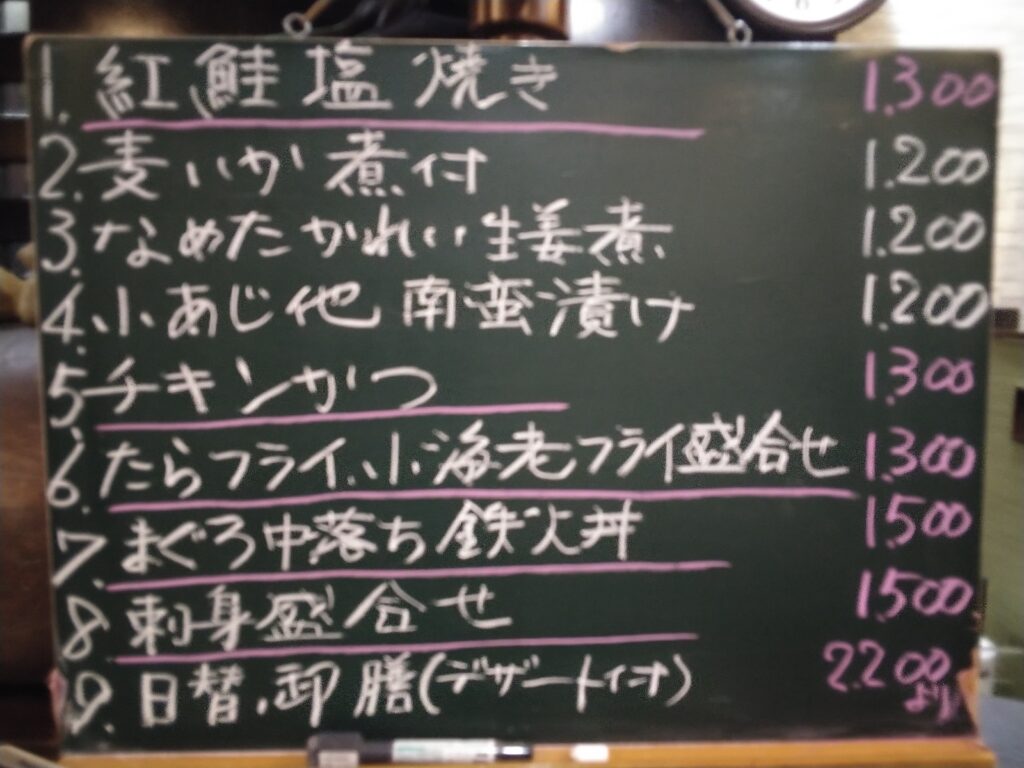 1. 紅鮭塩焼き 1.300
2. 麦いか煮付 1.200
3. なめたかれい生姜煮 1.200
4. 小あじ他 南蛮漬け 1.200
5. チキンかつ 1.300
6. たらフライ、小海老フライ盛合せ 1.300
7. まぐろ中落ち鉄火丼 1.500
8. 刺身盛合せ 1.500
9. 日替.卸膳(デザート付) 2.200より